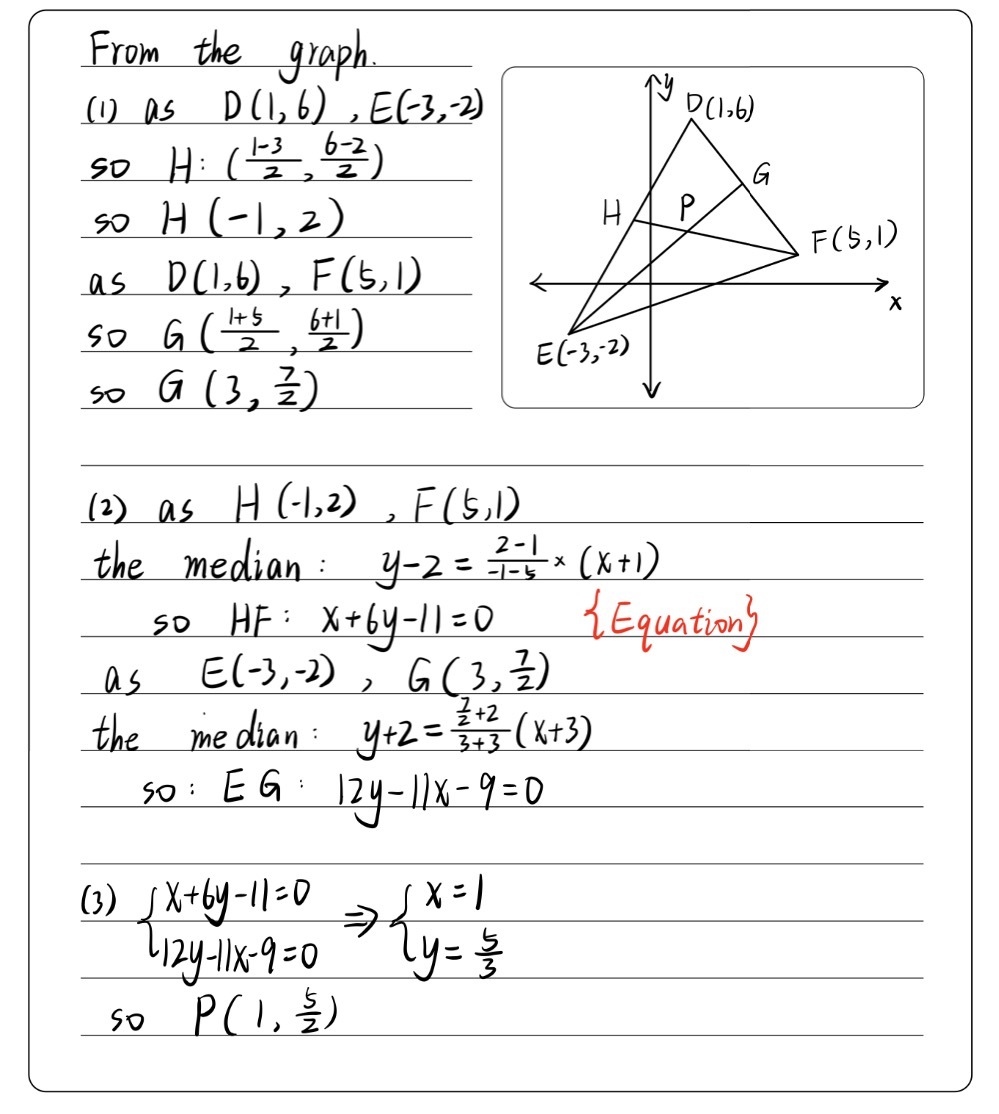 From the graph.
(1) as D(1,6) , E(-3,-2)
so H: (\frac{1-3}{2}, \frac{6-2}{2})
so H (-1, 2)
as D(1,6) , F(5,1)
so G (\frac{1+5}{2}, \frac{6+1}{2})
so G (3, \frac{7}{2})
y
D(1,6)
G
H
P
F(5,1)
x
E(-3,-2)
(2) as H (-1,2) , F(5,1)
the median: y-2 = \frac{2-1}{-1-5} × (x+1)
so HF: x+6y-11=0 {Equation}
as E(-3,-2) , G(3, \frac{7}{2})
the median: y+2 = \frac{\frac{7}{2}+2}{3+3} (x+3)
so: EG: 12y-11x-9=0
(3) { x+6y-11=0 ⇒ { x=1
12y-11x-9=0 y=\frac{5}{3}
so P(1, \frac{5}{2})